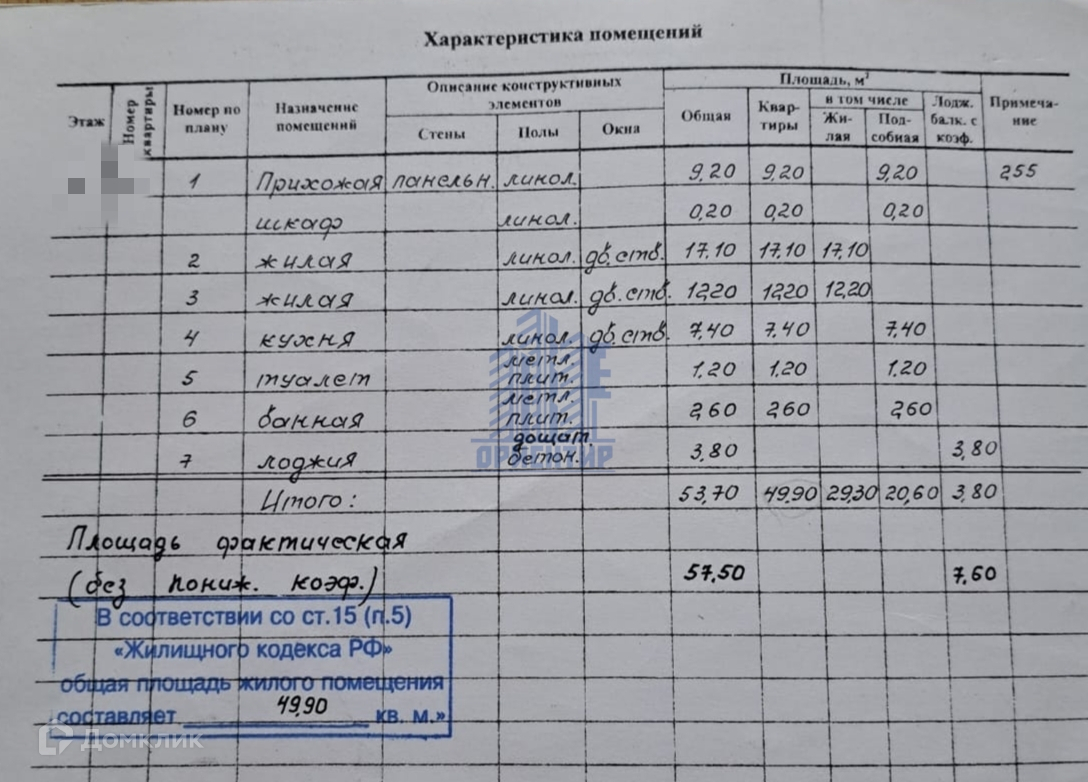 Характеристика помещений
Этаж
Номер квартиры
Номер по плану
Назначение помещений
Описание конструктивных элементов
Стены
Полы
Окна
Площадь, м²
Общая
Квар-тиры
в том числе
Жи-лая
Под-собная
Лодж. балк. с коэф.
Примеча-ние
1 Прихожая панельн. линол. 9,20 9,20 9,20 255
шкаф линол. 0,20 0,20 0,20
2 жилая линол. дв.ств. 17,10 17,10 17,10
3 жилая линол. дв.ств. 12,20 12,20 12,20
4 кухня линол. дв.ств. 7,40 7,40 7,40
5 туалет метл. плит. 1,20 1,20 1,20
6 ванная метл. плит. 2,60 2,60 2,60
7 лоджия дощат. бетон. 3,80 3,80
Итого: 53,70 49,90 29,30 20,60 3,80
Площадь фактическая
(без пониж. коэф.) 57,50 7,60
В соответствии со ст.15 (п.5)
«Жилищного кодекса РФ»
общая площадь жилого помещения
составляет 49,90 кв. м.»
ОРИЕНТИР
Домклик